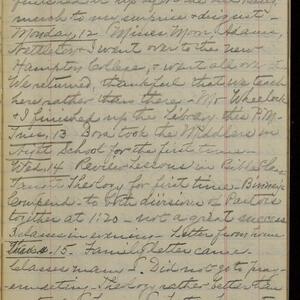 much to my surprise & disgust.
Monday, 12. Misses Morr, Adams,
& I went over to the new
Hampton College, & went all over it.
We returned, thankful that we teach
here rather than there. Mr. Wheelock
& I finished up the Library this P.M.
13 Bora took the Middlers in
School for the first time.
Wed. 14 Review Lessons in Bible Class
Theology for first time. Business
Compend. to 4th division & Pastors
together at 1:20 - not a great success
3 classes in evening. Letter from home
15. Family letter came.
Classes many. I did not go to pray-
er meeting. Theology rather better than